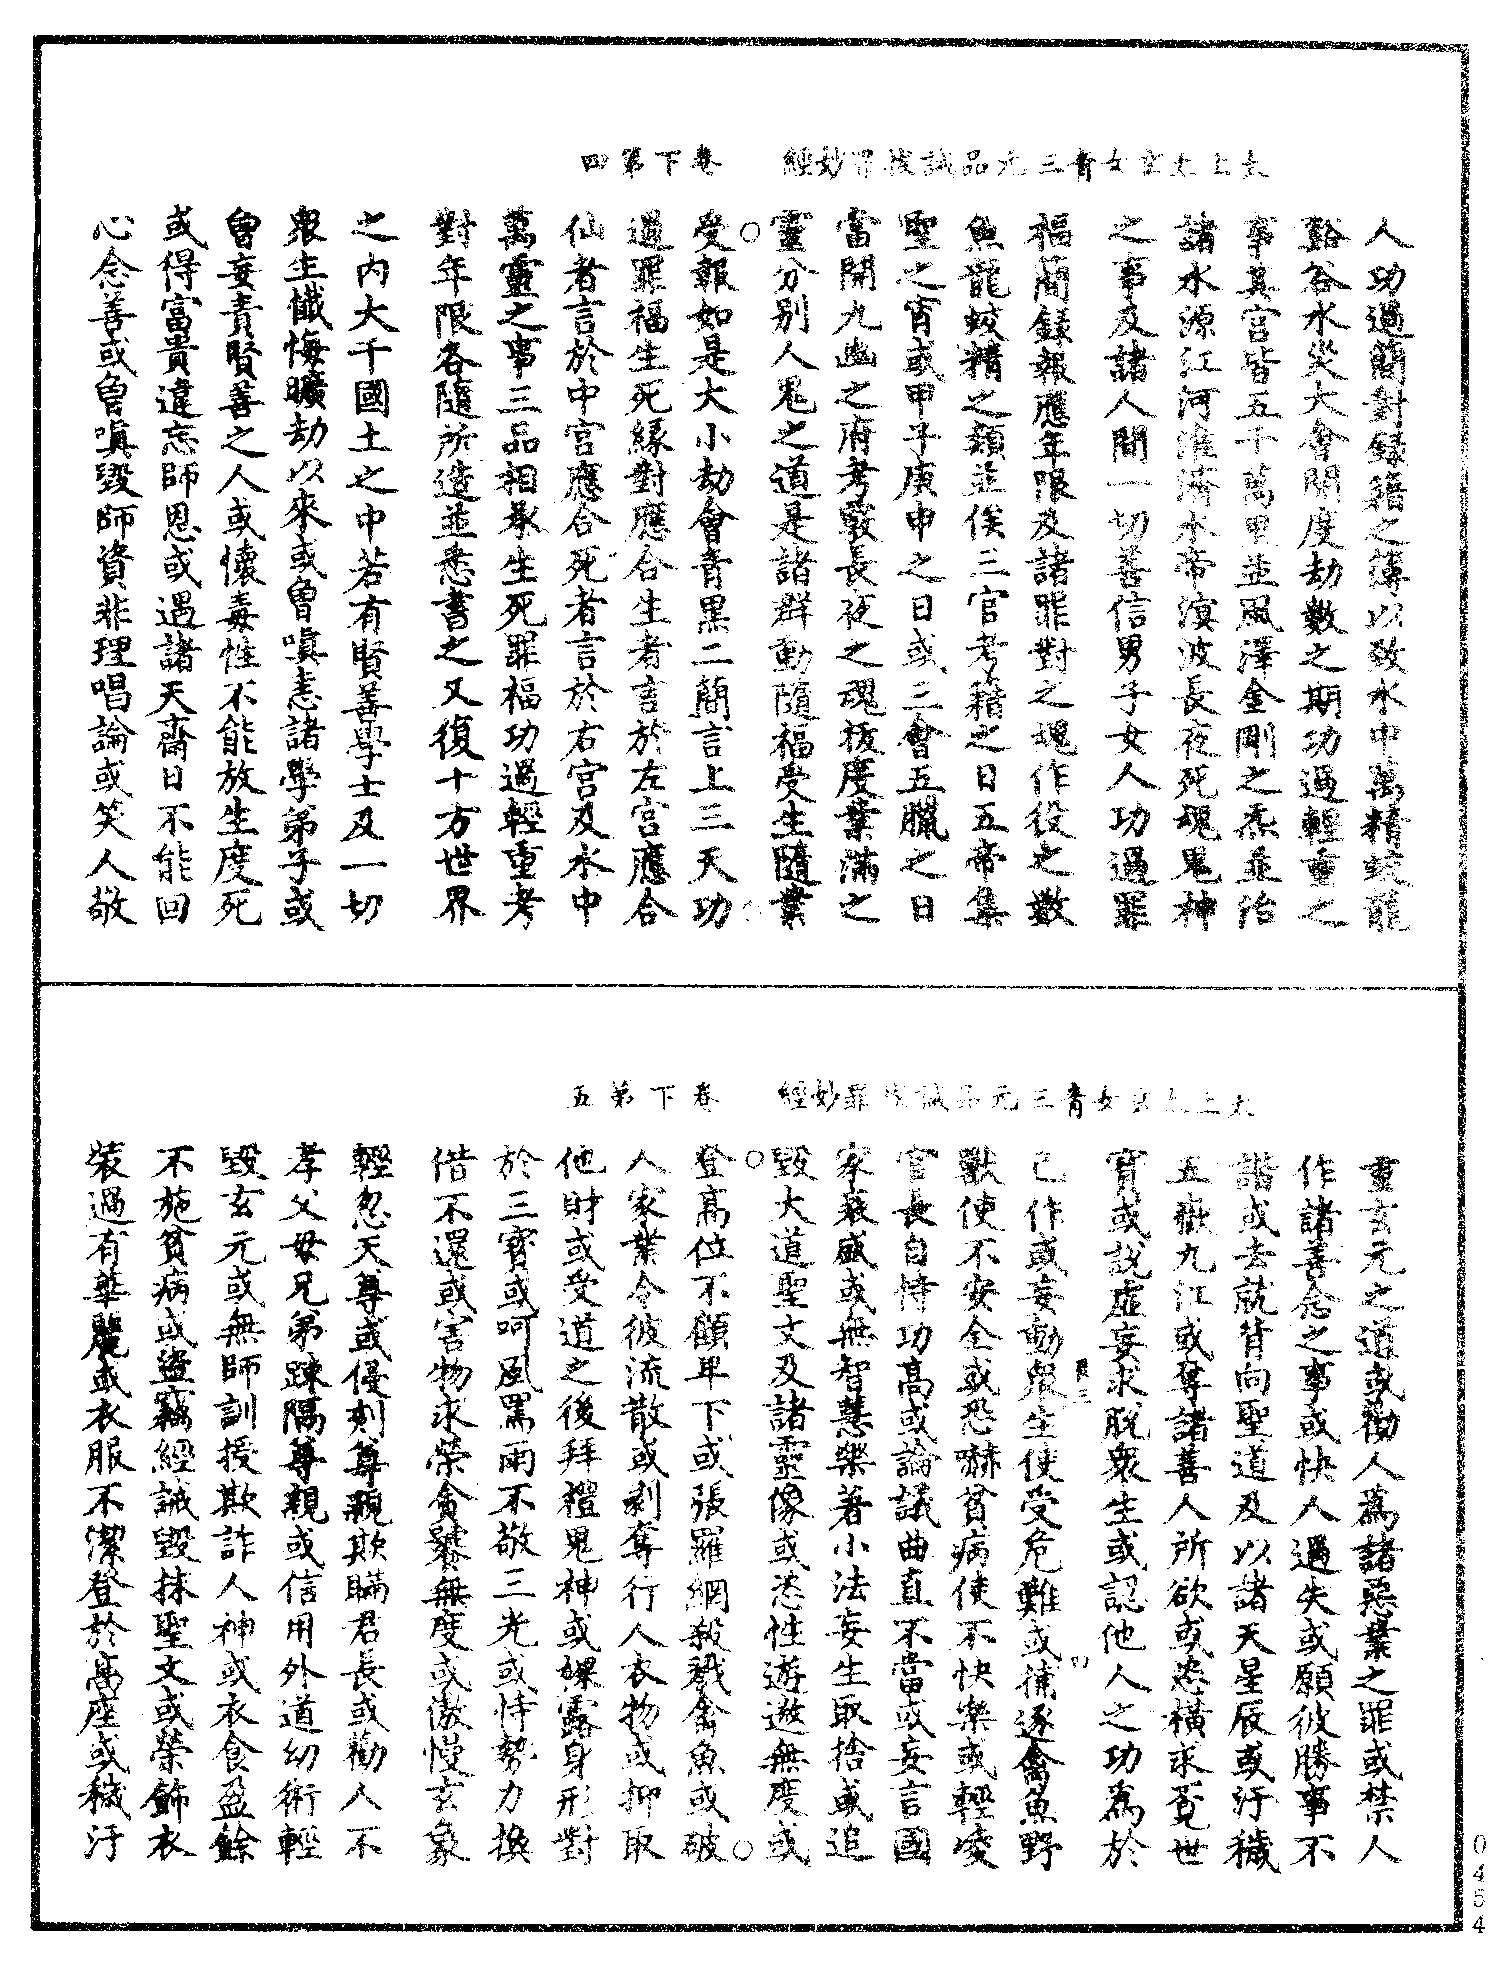 太上太玄女青三元品誡拔罪妙經　卷下第四
人功過簡對錄籍之簿以致水中萬精蛟龍
谿谷水災大會開度劫數之期功過輕重之
事其宮皆五千萬里並風澤金剛之炁並治
諸水源江河淮濟水帝溟波長夜死魂鬼神
之事及諸人間一切善信男子女人功過罪
福簡錄報應年限及諸罪對之魂作役之數
魚龍蛟精之類並俟三官考籍之日五帝集
聖之宵或甲子庚申之日或三會五臘之日
當開九幽之府考覈長夜之魂拔度業滿之
靈分別人鬼之道是諸群動隨福受生隨業
受報如是大小劫會青黑二簡言上三天功
過罪福生死緣對應合生者言於左宮應合
仙者言於中宮應合死者言於右宮及水中
萬靈之事三品相承生死罪福功過輕重考
對年限各隨所造並悉書之又復十方世界
之內大千國土之中若有賢善學士及一切
衆生懺悔曠劫以來或曾嗔恚諸學弟子或
曾妄責賢善之人或懷毒性不能放生度死
或得富貴違忘師恩或遇諸天齋日不能回
心念善或曾嗔毀師資非理唱論或笑人敬
太上太玄女青三元品誡拔罪妙經　卷下第五
重玄元之道或勸人爲諸惡業之罪或禁人
作諸善念之事或快人過失或願彼勝事不
諧或去就背向聖道及以諸天星辰或汙穢
五嶽九江或奪諸善人所欲或恣橫求覓世
寶或說虛妄求脫衆生或認他人之功爲於
己作或妄動衆生使受危難或捕逐禽魚野
獸使不安全或恐嚇貧病使不快樂或輕凌
官長自恃功高或論議曲直不當或妄言國
家衰盛或無智慧樂著小法妄生取捨或追
毀大道聖文及諸靈像或恣性遊遨無度或
登高位不顧卑下或張羅網殺戮禽魚或破
人家業令彼流散或剥奪行人衣物或抑取
他財或受道之後拜禮鬼神或裸露身形對
於三寶或呵風罵雨不敬三光或恃勢力換
借不還或害物求榮貪饕無度或傲慢玄象
輕忽天尊或侵刻尊親欺瞞君長或勸人不
孝父母兄弟踈隔尊親或信用外道幻術輕
毀玄元或無師訓授欺詐人神或衣食盈餘
不施貧病或盜竊經誡毀抹聖文或榮飾衣
裝過有華麗或衣服不潔登於高座或穢汙
0454